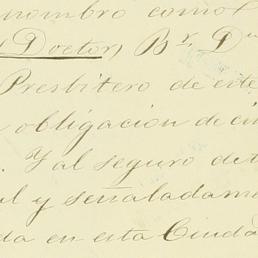 nombro como
Doctor, Br. Dn
Presbitero de este
obligación de
Y al seguro de
al y señaladam
da en esta Ciuda